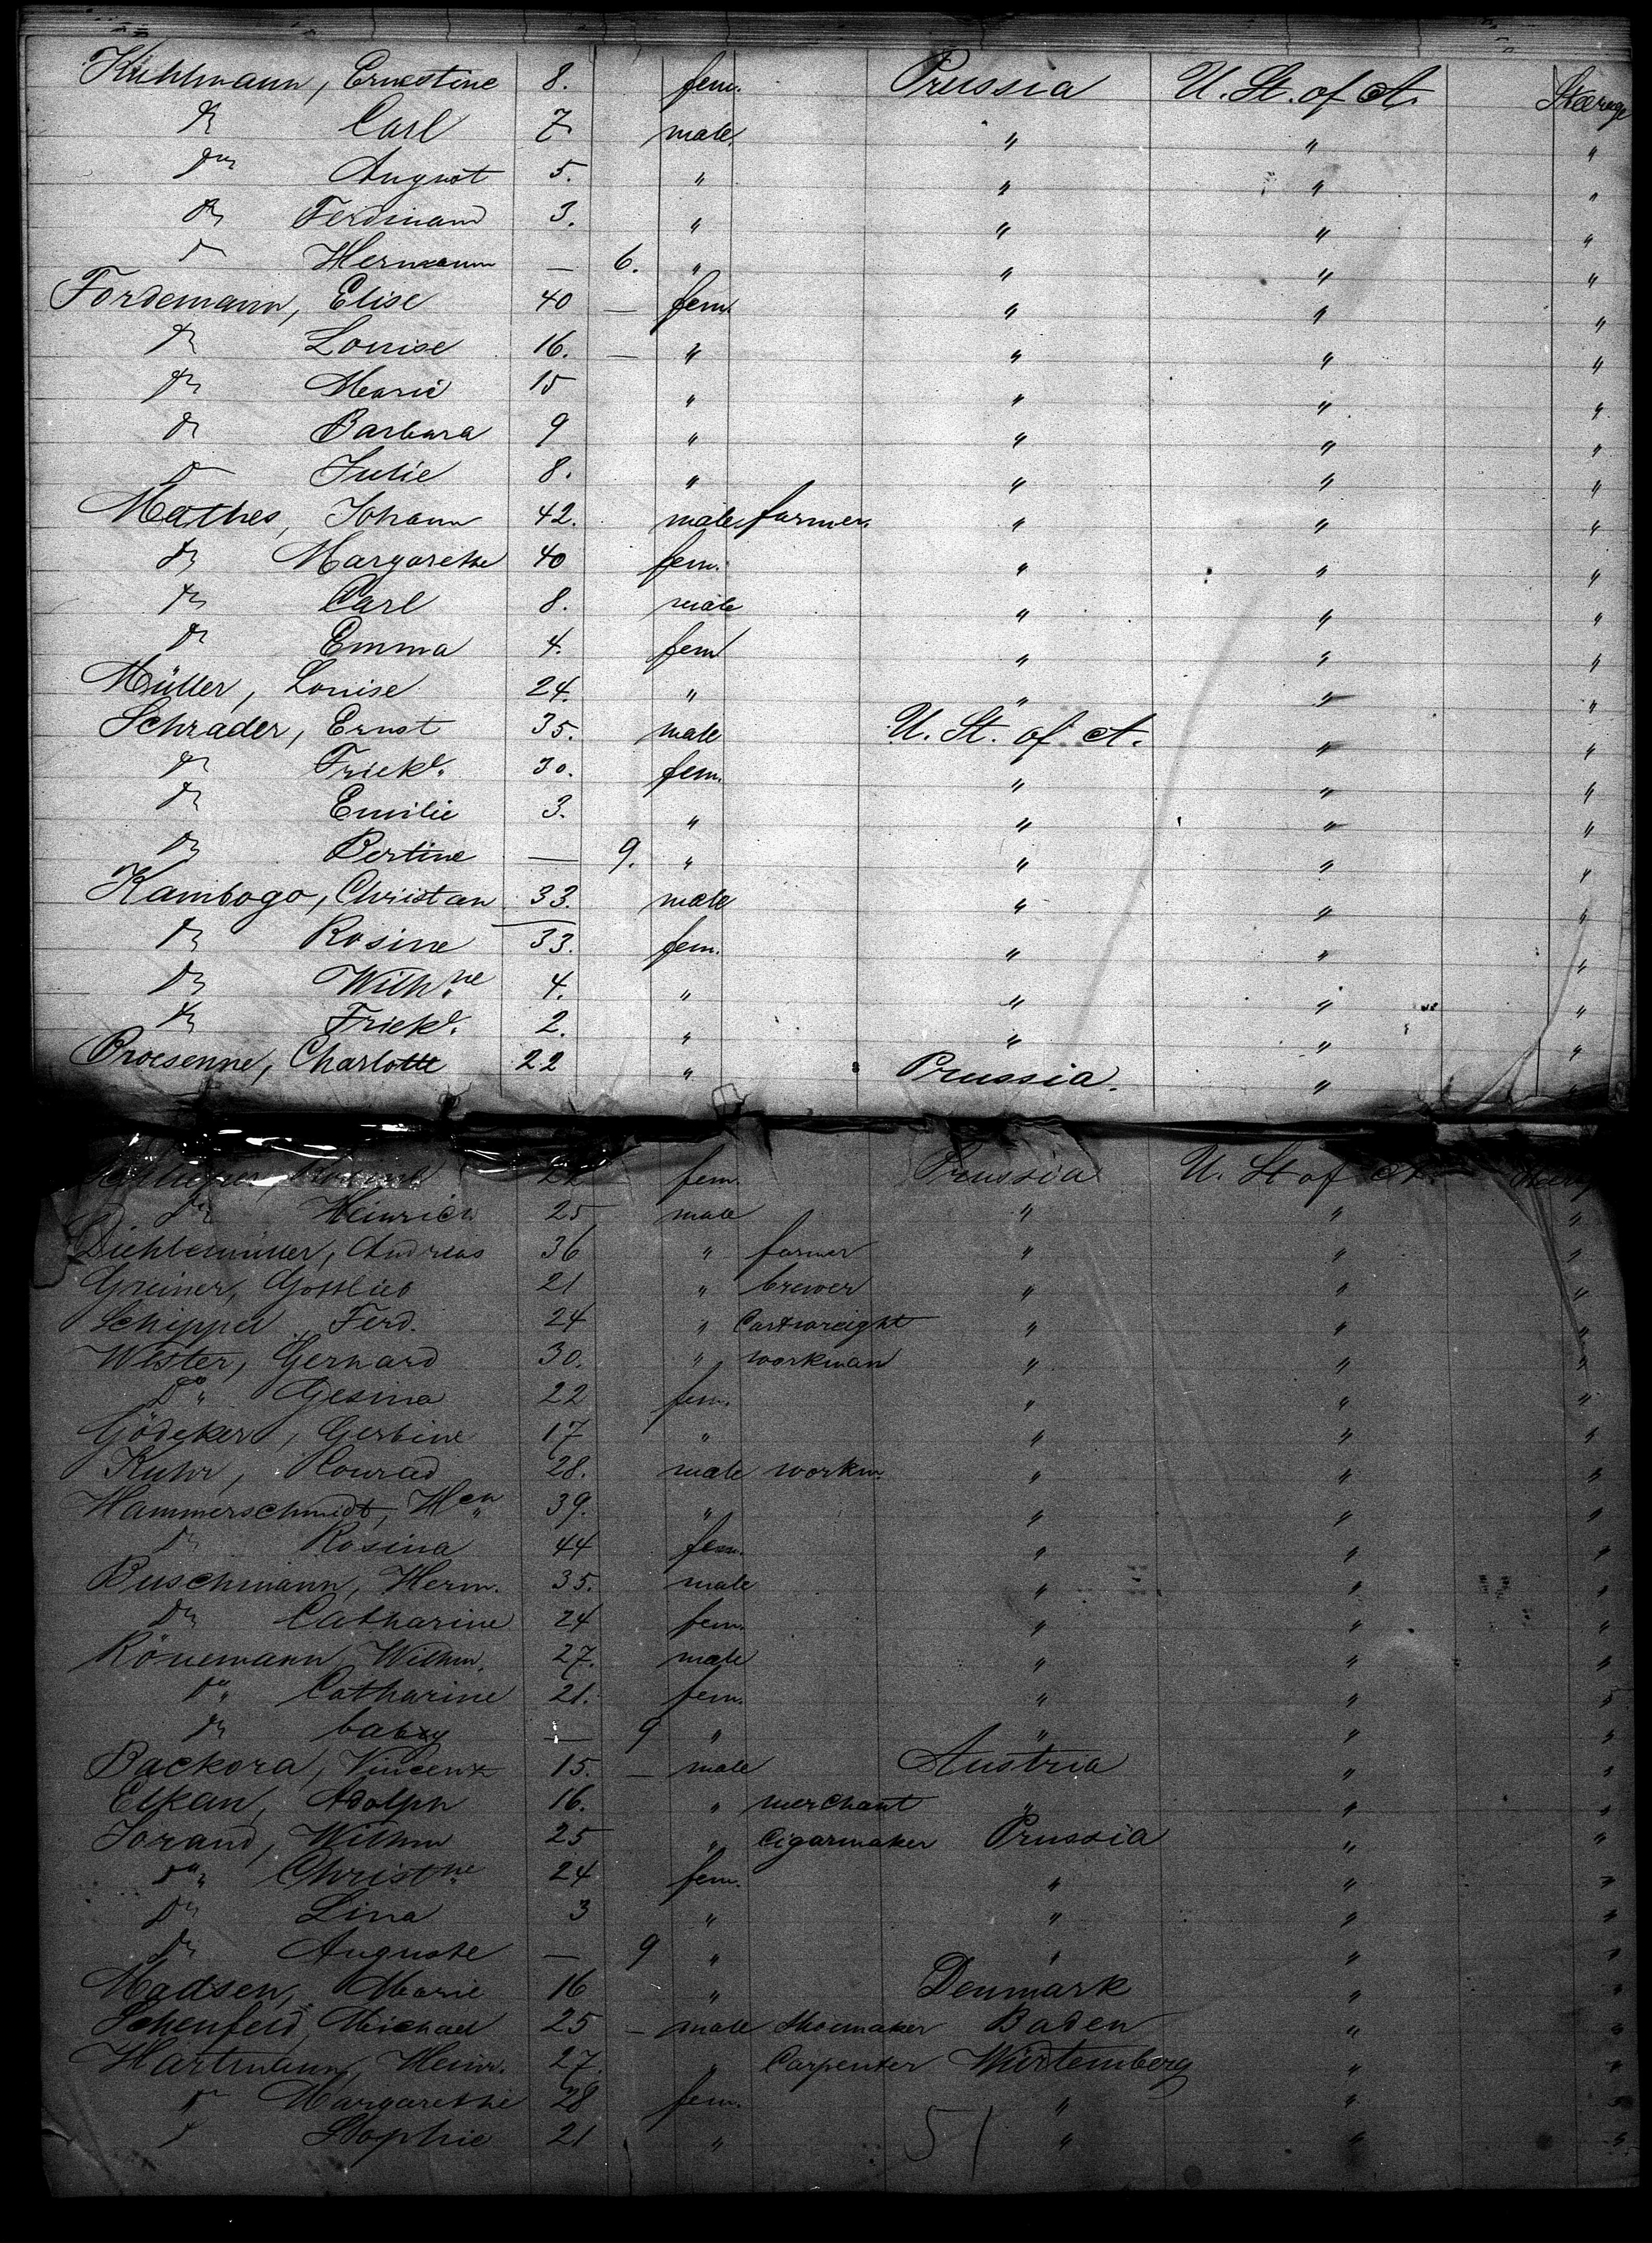 Kuhlmann, Ernestine 8. fem. Prussia U. St. of A. Steerage
do Carl 7 male. " " "
do August 5. " " " "
do Ferdinand 3. " " " "
do Hermann — 6. " " " "
Fordemann, Elise 40 — fem. " " "
do Louise 16. — " " " "
do Marie 15 " " " "
do Barbara 9 " " " "
do Julie 8. " " " "
Mathes, Johann 42. male farmer " " "
do Margarethe 40 fem. " " "
do Carl 8. male " " "
do Emma 4. fem " " "
Müller, Louise 24. " " " "
Schrader, Ernst 35. male U. St. of A. " "
do Friek. 30. fem. " " "
do Emilie 3. " " " "
do Bertine — 9. " " " "
Kambogo, Christan 33. male " " "
do Rosine 33. fem. " " "
do Wilhne 4. " " " "
do Friek. 2. " " " "
Proesenne, Charlotte 22 " Prussia. " "
22 fem. Prussia U. St of A.
do Heinrich 25 male " " "
Diehlemüller, Andreas 36 " farmer " " "
Greiner, Gottlieb 21 " brewer " " "
Schippel Ferd. 24 " Cartwreight " " "
Wister, Gerhard 30. " workman " " "
Do " Gesina 22 fem. " " "
Gödeker, Gerbine 17 " " " "
Kuhr, Conrad 28. male workm. " " "
Hammerschmidt, Hch 39. " " " "
do Rosina 44 fem. " " "
Buschmann, Herm. 35. male " " "
do Catharine 24 fem. " " "
Rönemann, Wilhm. 27. male " " "
do Catharine 21. fem. " " "
do baby — 9 " " " "
Backora, Vincenz 15. — male Austria " "
Elkan, Adolph 16. " merchant " " "
Jorand, Wilhm 25 " Cigarmaker Prussia " "
do Christne 24 fem. " " "
do Lina 3 " " " "
do Auguste — 9 " " " "
Madsen, Marie 16 " Denmark " "
Schenfeld, Michael 25 — male Shoemaker Baden " "
Hartmann, Heinr. 27. " Carpenter Würtemberg " "
do Margarethe 28 fem. " " "
do Sophie 21 " " " "
51